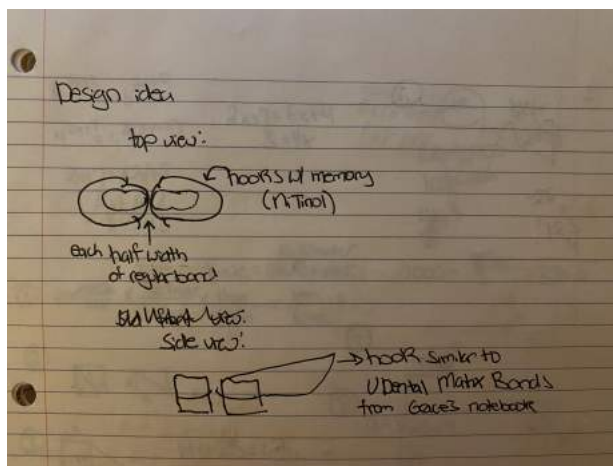 Design idea
top view:
hooks w/ memory
(niTinol)
each half width
of regular band
side view:
hook similar to
U Dental Matrix Bands
from Grace's notebook